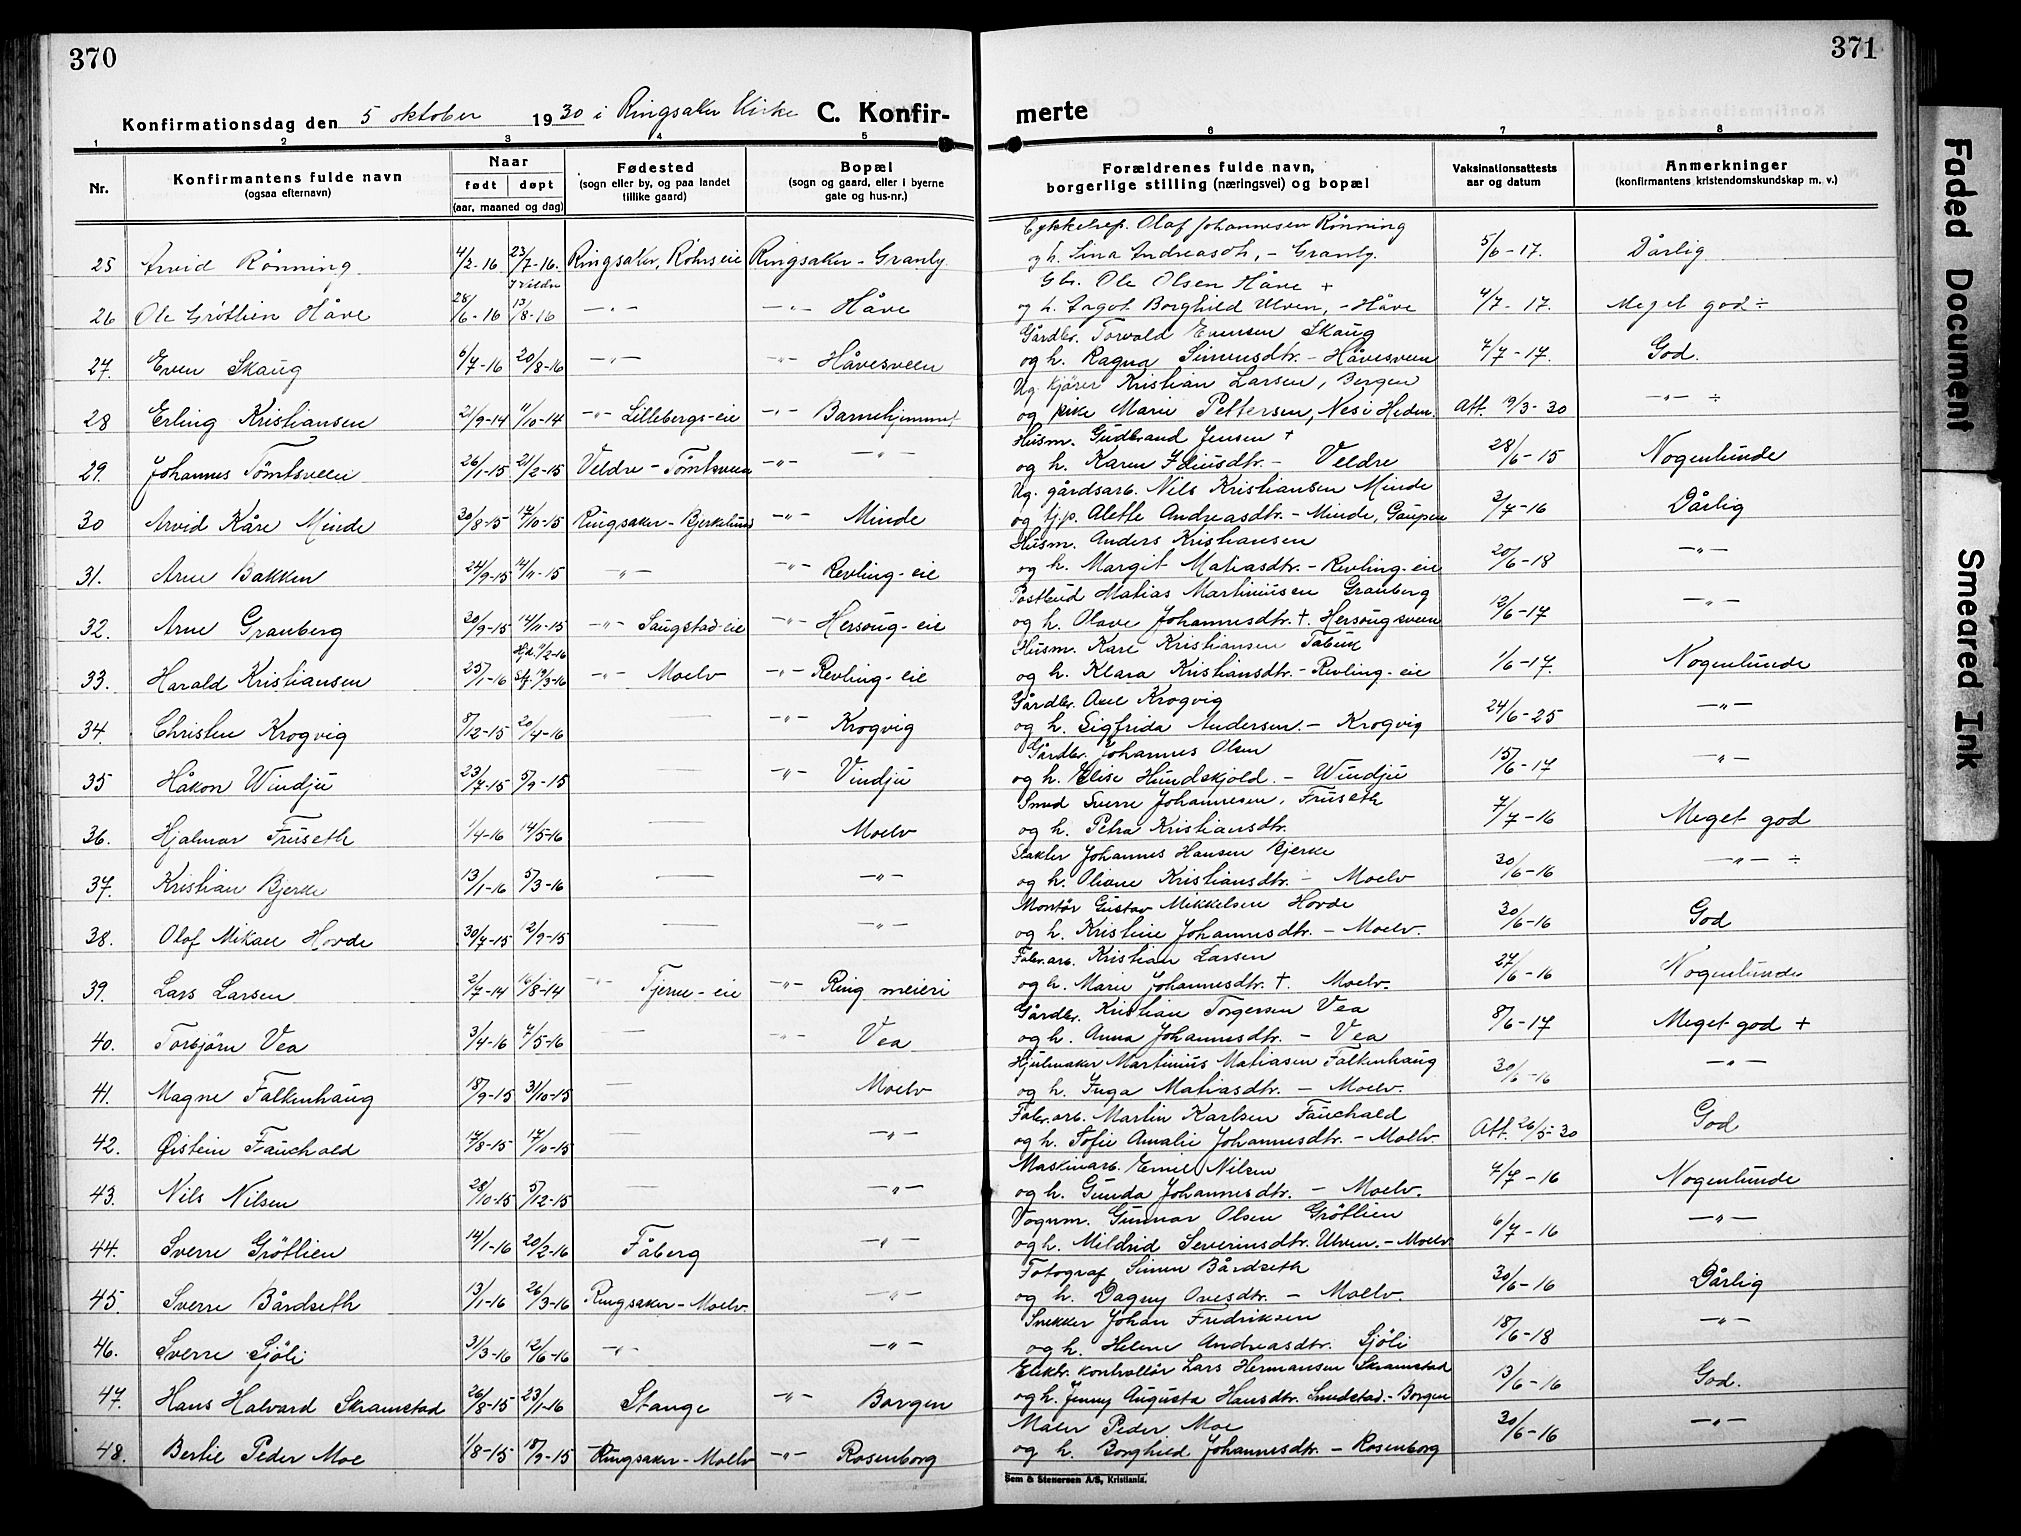 370
371
Konfirmationsdag den 5 oktober 1930 i Ringsaker Kirke C. Konfir- merte
1 2 3 4 5 6 7 8
Nr.
Konfirmantens fulde navn
(ogsaa efternavn)
Naar
født døpt
(aar, maaned og dag)
Fødested
(sogn eller by, og paa landet
tillike gaard)
Bopæl
(sogn og gaard, eller i byerne
gate og hus-nr.)
Forældrenes fulde navn,
borgerlige stilling (næringsvei) og bopæl
Vaksinationsattests
aar og datum
Anmerkninger
(konfirmantens kristendomskundskap m. v.)
Cykkelrep. Olaf Johannesen Rønning
25 Arvid Rønning 4/2-16 23/7-16. Ringsaker, Rohrseie Ringsaker - Granby og h. Lina Andreasdh, - Granby. 5/6-17. Dårlig
I Veldre
Gbr. Ole Olsen Håve +
26 Ole Grøtlien Håve 28/6-16 13/8-16 -"- -"- Håve og h. Aagot Borghild Ulven, - Håve 4/7-17. Meget god ÷
Gårdbr. Torvald Evensen Skaug
27. Even Skaug 6/7-16 20/8-16 -"- -"- Håvesveen og h. Ragna Simensdtr. - Håvesveen 4/7-17. God.
Ug. kjører Kristian Larsen, Bergen
28 Erling Kristiansen 21/9-14 11/10-14 -"- Lillebergs-eie -"- Barnehjemmet og pike Marie Pettersen, Nes i Hedm. Att. 19/3-30 -"- ÷
Husm. Gudbrand Jensen +
29. Johannes Tømtsveen 26/1-15 21/2-15 Veldre - Tømtsveen -"- -"- og h. Karen Ideusdtr. - Veldre 28/6-15 Nogenlunde
Ug. gårdsarb. Nils Kristiansen Minde
30 Arvid Kåre Minde 30/8-15 17/10-15 Ringsaker - Bjerkelund -"- Minde og tj.p. Alette Andreasdtr. - Minde, Gaupen 3/7-16 Dårlig
Husm. Anders Kristiansen
31. Arne Bakken 24/9-15 14/11-15 -"- -"- Revling-eie og h. Margit Matiasdtr. - Revling-eie 20/6-18 -"-
Postbud Matias Martiniusen Granberg
32. Arne Granberg 30/9-15 14/11-15 -"- Saugstad-eie -"- Hersoug-eie og h. Olave Johannesdtr. +. Hersougsveen 12/6-17 -"-
Hjd. 11/2-16
Husm. Kare Kristiansen
33. Harald Kristiansen 25/1-16 Stf. 19/3-16 -"- Moelv -"- Revling-eie og h. Klara Kristiansdtr. - Revling-eie 1/6-17. Nogenlunde
Gårdbr. Axel Krogvig
34. Christen Krogvig 8/12-15 20/4-16 — -"- Krogvig og h. Sigfrida Andersen. - Krogvig 24/6-25 -"-
Gårdbr. Johannes Olsen
35 Håkon Windju 23/7-15 5/9-15 — -"- Vindju og h. Elise Hundskjold. - Windju 15/6-17 -"-
Smed Sverre Johannesen, Fruseth
36. Hjalmar Fruseth 1/4-16 14/5-16 — Moelv og h. Petra Kristiansdtr. 7/7-16 Meget god
Slakter Johannes Hansen Bjerke
37. Kristian Bjerke 13/1-16 5/3-16 — -"- og h. Oliane Kristiansdtr - Moelv 30/6-16 -"- ÷
Montør Gustav Mikkelsen Horde
38. Olof Mikael Horde 30/7-15 12/9-15 — -"- og h. Kristine Johannesdtr. - Moelv. 30/6-16 God
Fabr.arb. Kristian Larsen
39. Lars Larsen 2/7-14 16/8-14 -"- Tjerne-eie -"- Ring meieri og h. Marie Johannesdtr. +. Moelv. 27/6-16 Nogenlunde
Gårdbr. Kristian Torgersen Vea
40. Torbjørn Vea 3/4-16 7/5-16 — -"- Vea og h. Anna Johannesdtr. - Vea 8/6-17 Meget god +
Hjulmaker Martinius Matiasen Falkenhaug
41. Magne Falkenhaug 18/9-15 31/10-15 — Moelv og h. Inga Matiasdtr. - Moelv. 30/6-16 -"-
Fabr.arb. Martin Karlsen Fauchald
42. Øistein Fauchald 17/8-15 17/10-15 — -"- og h. Sofie Amalie Johannesdtr. - Moelv Att. 26/5-30 God
Maskinarb. Emil Nilsen
43. Nils Nilsen 28/10-15 5/12-15 — -"- og h. Gunda Johannesdtr. - Moelv. 4/7-16 Nogenlunde
Vognm. Gunnar Olsen Grøtlien
44. Sverre Grøtlien 14/1-16 20/2-16 Fåberg -"- og h. Mildrid Severinsdtr. Ulven. - Moelv 6/7-16 -"-
Fotograf Simen Bårdseth
45. Sverre Bårdseth 13/1-16 26/3-16 Ringsaker - Moelv. -"- og h. Dagny Ovesdtr. - Moelv. 30/6-16 Dårlig
Snekker Johan Fredriksen
46. Sverre Sjøli 31/3-16 12/6-16 -"- -"- og h. Helene Andreasdtr. Sjøli 18/6-18 -"-
Elektr. kontrollør Lars Hermansen Skramstad
47. Hans Halvard Skramstad 26/8-15 23/1-16 Stange -"- Borgen og h. Jenny Augusta Hansdtr. Smedstad. - Borgen 13/6-16 God.
Maler Peder Moe
48. Bertil Peder Moe 1/8-15 18/9-15 Ringsaker - Moelv -"- Rosenborg og h. Borghild Johannesdtr. - Rosenborg 30/6-16 -"-
Sem & Stenersen A/S, Kristiania.
Faded Document
Smeared Ink